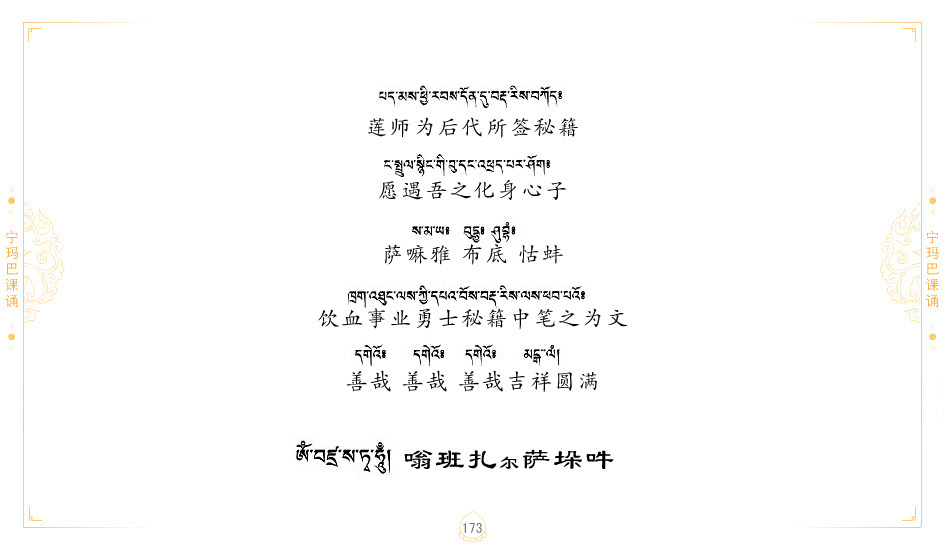 པད་མས་ཕྱི་རབས་དོན་དུ་བརྡ་རིས་བཀོད༔
莲师为后代所签秘籍
ང་སྤྲུལ་སྙིང་གི་བུ་དང་འཕྲད་པར་ཤོག༔
愿遇吾之化身心子
ས་མ་ཡ༔ བུདྡྷ༔
萨嘛雅 布底 怙蚌
ཁྲག་འཐུང་ལས་ཀྱི་དཔའ་བོས་བརྡ་རིས་ལས་ཕབ་པའོ༔
饮血事业勇士秘籍中笔之为文
དགེའོ༔ དགེའོ༔ དགེའོ༔ མངྒ་ལཾ།
善哉 善哉 善哉吉祥圆满
ཨོཾ་བཛྲ་ས་ཏྭ་ཧཱུྃ། 嗡班扎尔萨垛吽
宁玛巴课诵
宁玛巴课诵
173